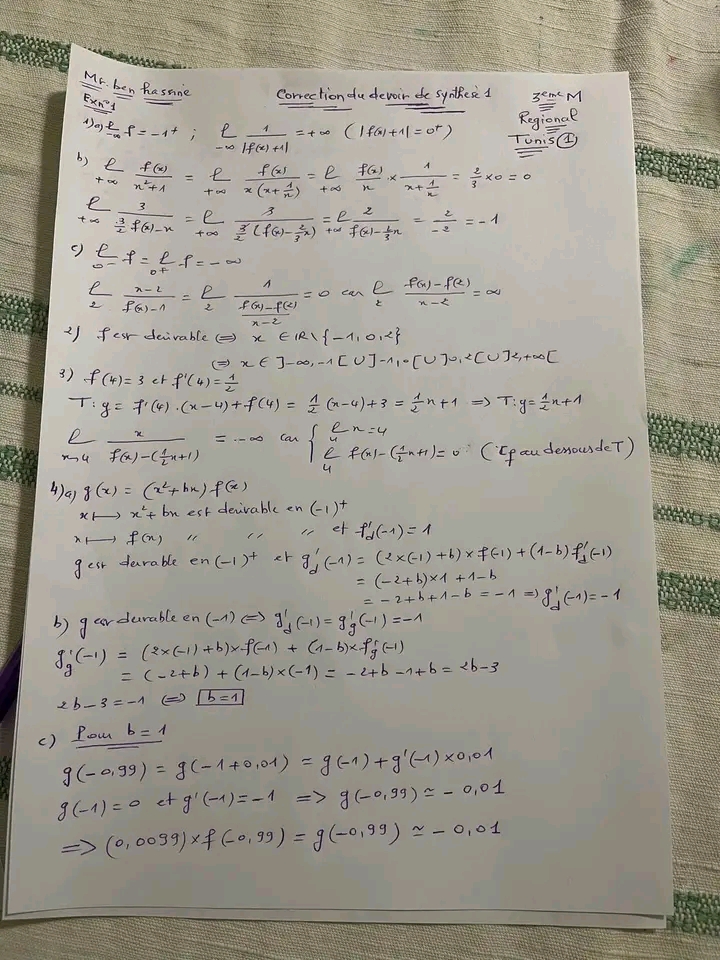 Mr. ben hassine
Correction du devoir de synthèse 1
3eme M
Exn°1
Regional
Tunis 1
1) a) ℓ -∞ f = -1⁺ ; ℓ -∞ 1/|f(x)+1| = +∞ (|f(x)+1| = 0⁺)
b) ℓ +∞ f(x)/(x²+1) = ℓ +∞ f(x)/(x(x+1/x)) = ℓ +∞ f(x)/x × 1/(x+1/x) = 2/3 × 0 = 0
ℓ +∞ 3/(3/2 f(x)-x) = ℓ +∞ 3/(3/2 (f(x)-2/3 x)) = ℓ +∞ 2/(f(x)-2/3 x) = 2/-2 = -1
c) ℓ 0⁻ f = ℓ 0⁺ f = -∞
ℓ 2 (x-2)/(f(x)-1) = ℓ 2 1/((f(x)-f(2))/(x-2)) = 0 car ℓ 2 (f(x)-f(2))/(x-2) = ∞
2) f est derivable ⇔ x ∈ IR\{-1,0,2}
⇔ x ∈ ]-∞,-1[ U ]-1,0[ U ]0,2[ U ]2,+∞[
3) f(4)=3 et f'(4)=1/2
T: y = f'(4).(x-4)+f(4) = 1/2 (x-4)+3 = 1/2 x+1 ⇒ T: y=1/2 x+1
ℓ x→4 x/(f(x)-(1/2 x+1)) = -∞ car { ℓ 4 x=4
ℓ 4 f(x)-(1/2 x+1) = 0⁻ (ζf au dessous de T)
4) a) g(x) = (x²+bx) f(x)
x ↦ x²+bx est derivable en (-1)⁺
x ↦ f(x) " " " et f'd(-1) = 1
g est derivable en (-1)⁺ et g'd(-1) = (2×(-1)+b) × f(-1) + (1-b) f'd(-1)
= (-2+b)×1 + 1-b
= -2+b+1-b = -1 ⇒ g'd(-1) = -1
b) g est derivable en (-1) ⇔ g'd(-1) = g'g(-1) = -1
g'g(-1) = (2×(-1)+b)×f(-1) + (1-b)×f'g(-1)
= (-2+b) + (1-b)×(-1) = -2+b-1+b = 2b-3
2b-3 = -1 ⇔ b=1
c) Pour b = 1
g(-0,99) = g(-1+0,01) ≃ g(-1)+g'(-1)×0,01
g(-1)=0 et g'(-1)=-1 ⇒ g(-0,99) ≃ -0,01
⇒ (0,0099)×f(-0,99) = g(-0,99) ≃ -0,01